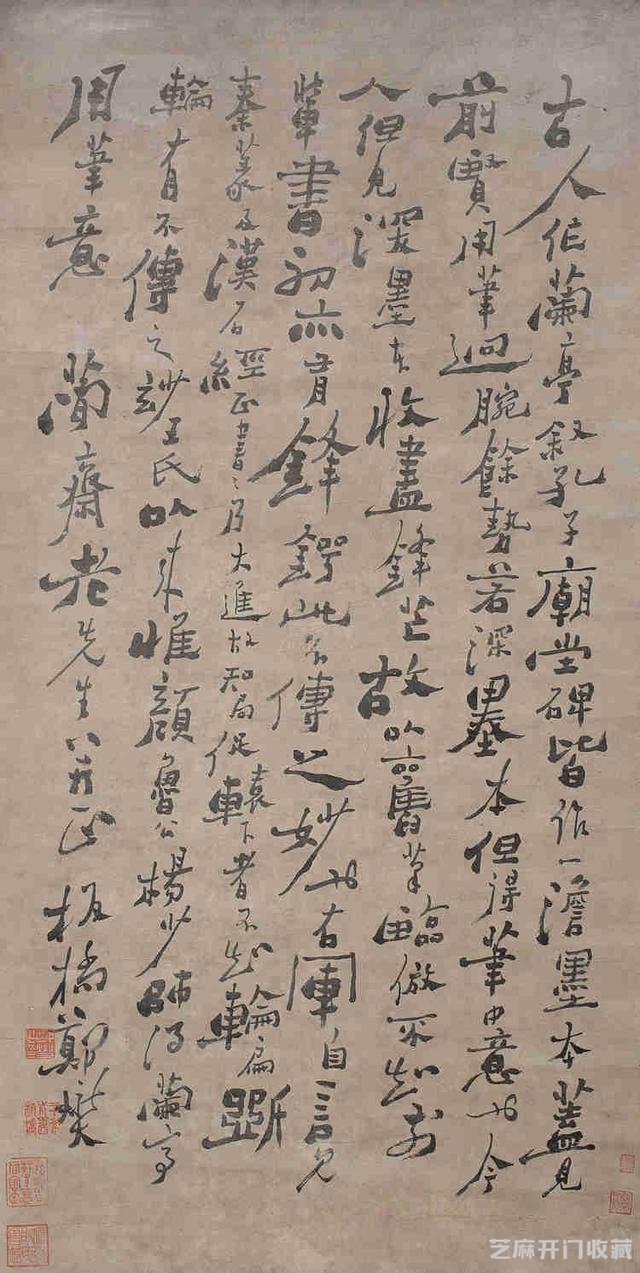 古人作蘭亭叙孔子廟堂碑皆作一澹墨本蓋見
前賢用筆迴腕餘勢若深墨本但得筆中意也今
人但見深墨本收盡鋒芒故以舊筆臨倣不知前
輩書初亦有鋒鍔此不傳之妙也右軍自言見
秦篆及漢石經正書書乃大進故知局促轅下者不知輪扁斲
輪有不傳之妙王氏以來惟顏魯公楊少師得蘭亭
用筆意 蘭齋老先生正 板橋鄭燮
芝麻开门收藏